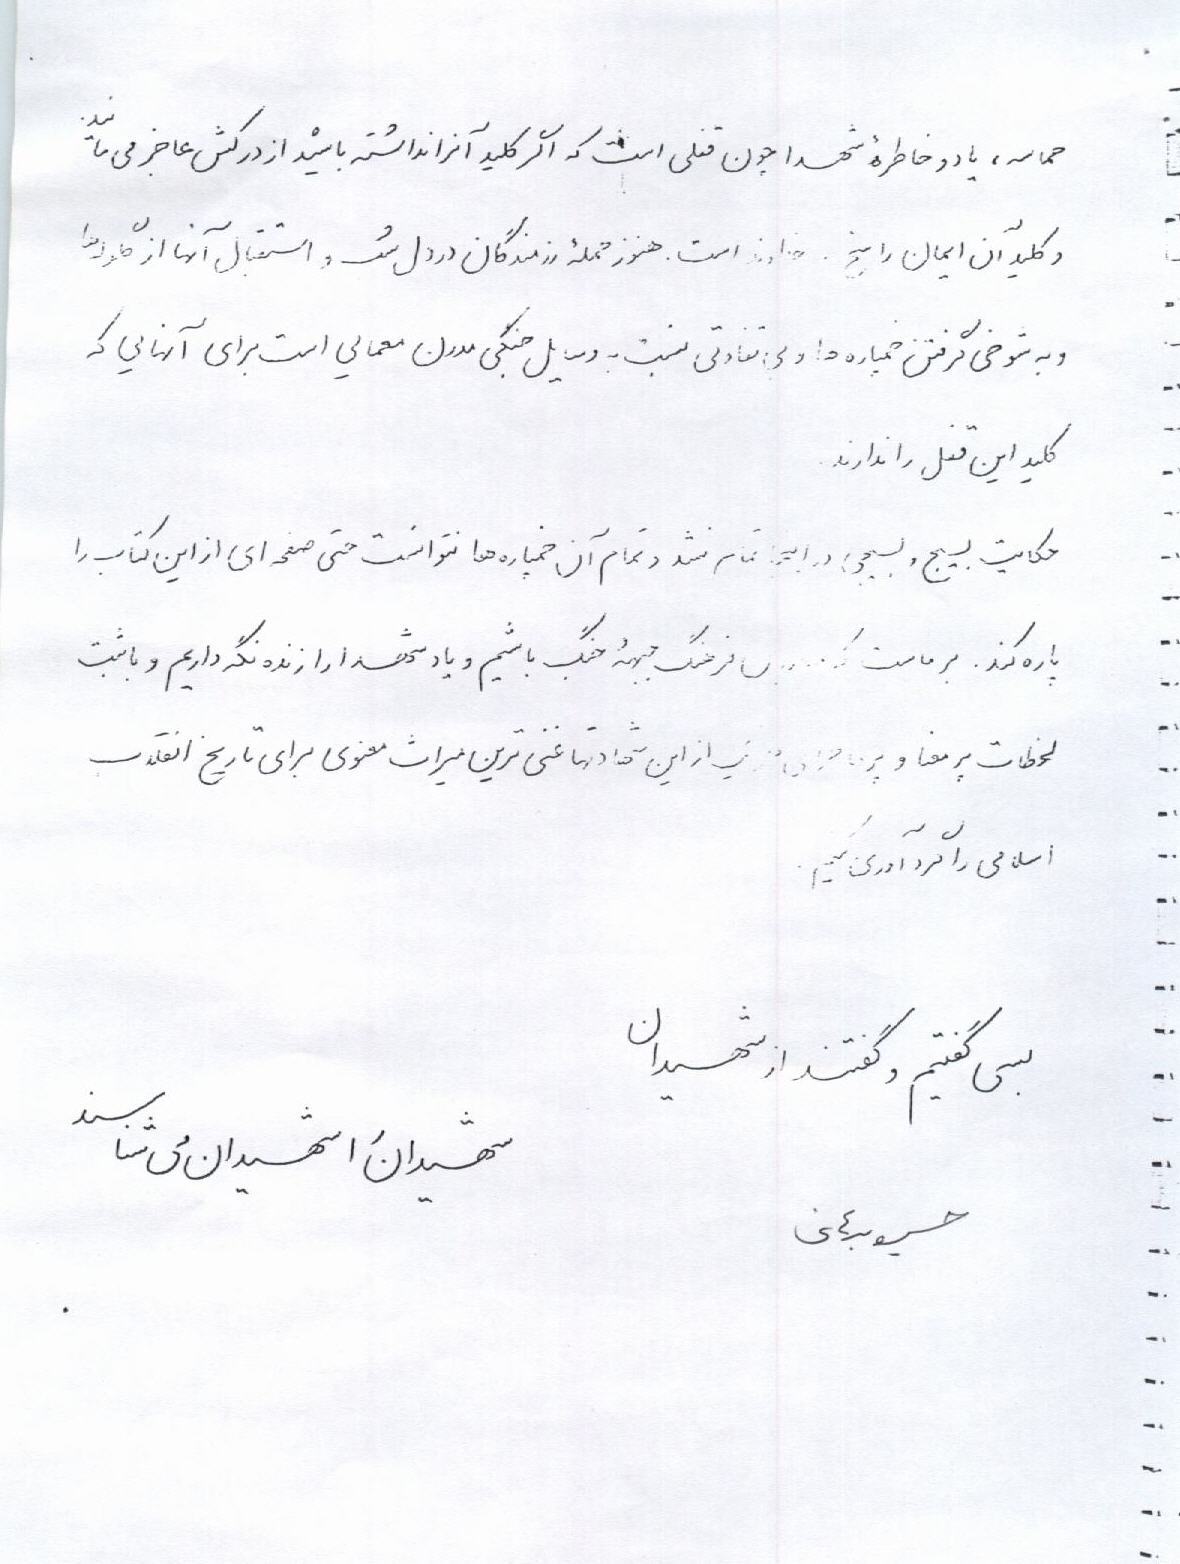 حماسه، یاد و خاطرهٔ شهدا چون قفلی است که اگر کلید آنرا نداشته باشید از درکش عاجز می مانید.
و کلید آن ایمان راسخ خداوند است. هنوز حملهٔ رزمندگان در دل شب و استقبال آنها از گلوله‌ها
و به شوخی گرفتن خمپاره ها و بی تفاوتی نسبت به وسایل جنگی مدرن معمایی است برای آنهایی که
کلید این قفل را ندارند.
حکایت بسیج و بسیجی در اینجا تمام نشد و تمام آن خمپاره ها نتوانست حتی صفحه ای از این کتاب را
پاره کند. بر ماست که فرهنگ جبههٔ جنگ باشیم و یاد شهدا را زنده نگه داریم و با ثبت
لحظات پر معنا و از این شهادتها غنی ترین میراث معنوی برای تاریخ انقلاب
اسلامی را گردآوری کنیم.
بسی گفتیم و گفتند از شهیدان
شهیدان را شهیدان می شناسند